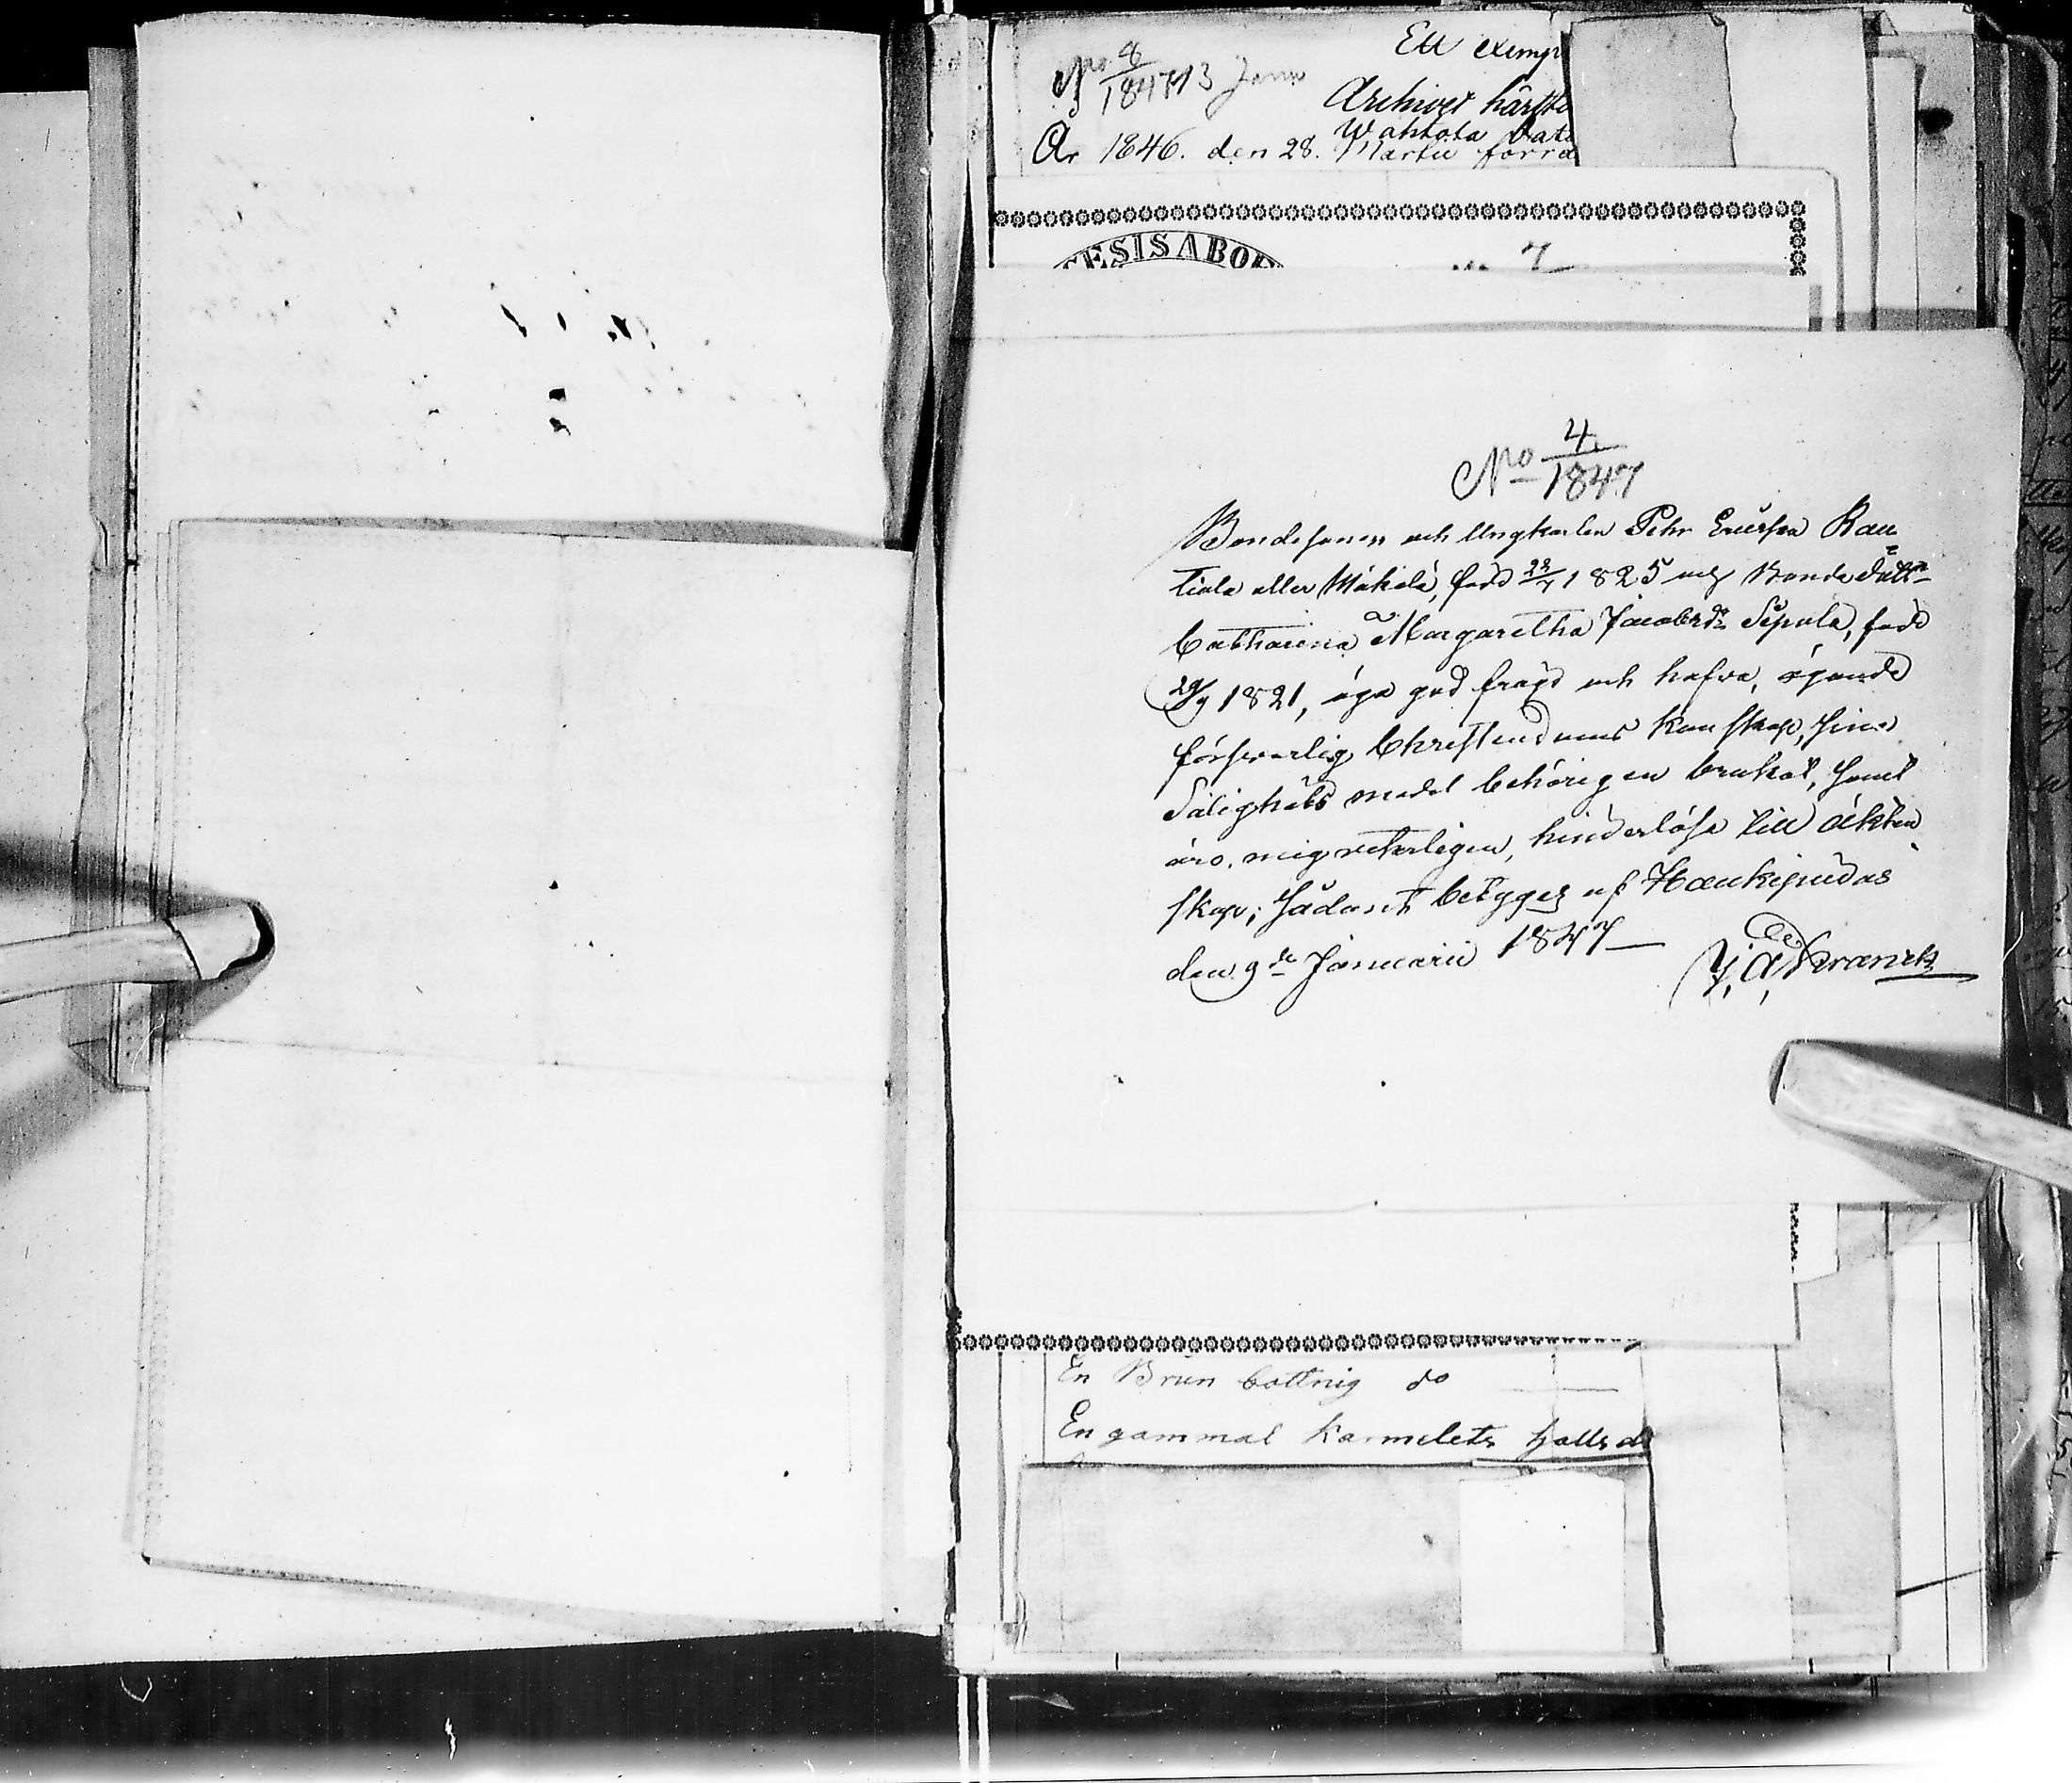 No 8/1847 13 Janu
Ett exempl
Archivet härste
Wahtola
År 1846. den 28. Martii förrä
ESIS ABO
7
No 4/1847
Bondesonen och Ungkarlen Pehr Ericsson Rau
tiola eller Mäkelä, född 22/7 1825 och Bonde dottn
Catharina Margaretha Jacobsdr Sipola, född
29/9 1821, äga god frägd och hafva, ägande
försvarlig Christendoms kunskap, sina
Salighets medel behörigen brukat, samt
äro, mig veterligen, hinderlösa till äkten
skap; Sådant betygges af Haukipudas
den 9de Januarii 1847
J. A. Svanck
En Brun Cottnig do
En gammal Karmelets halls d